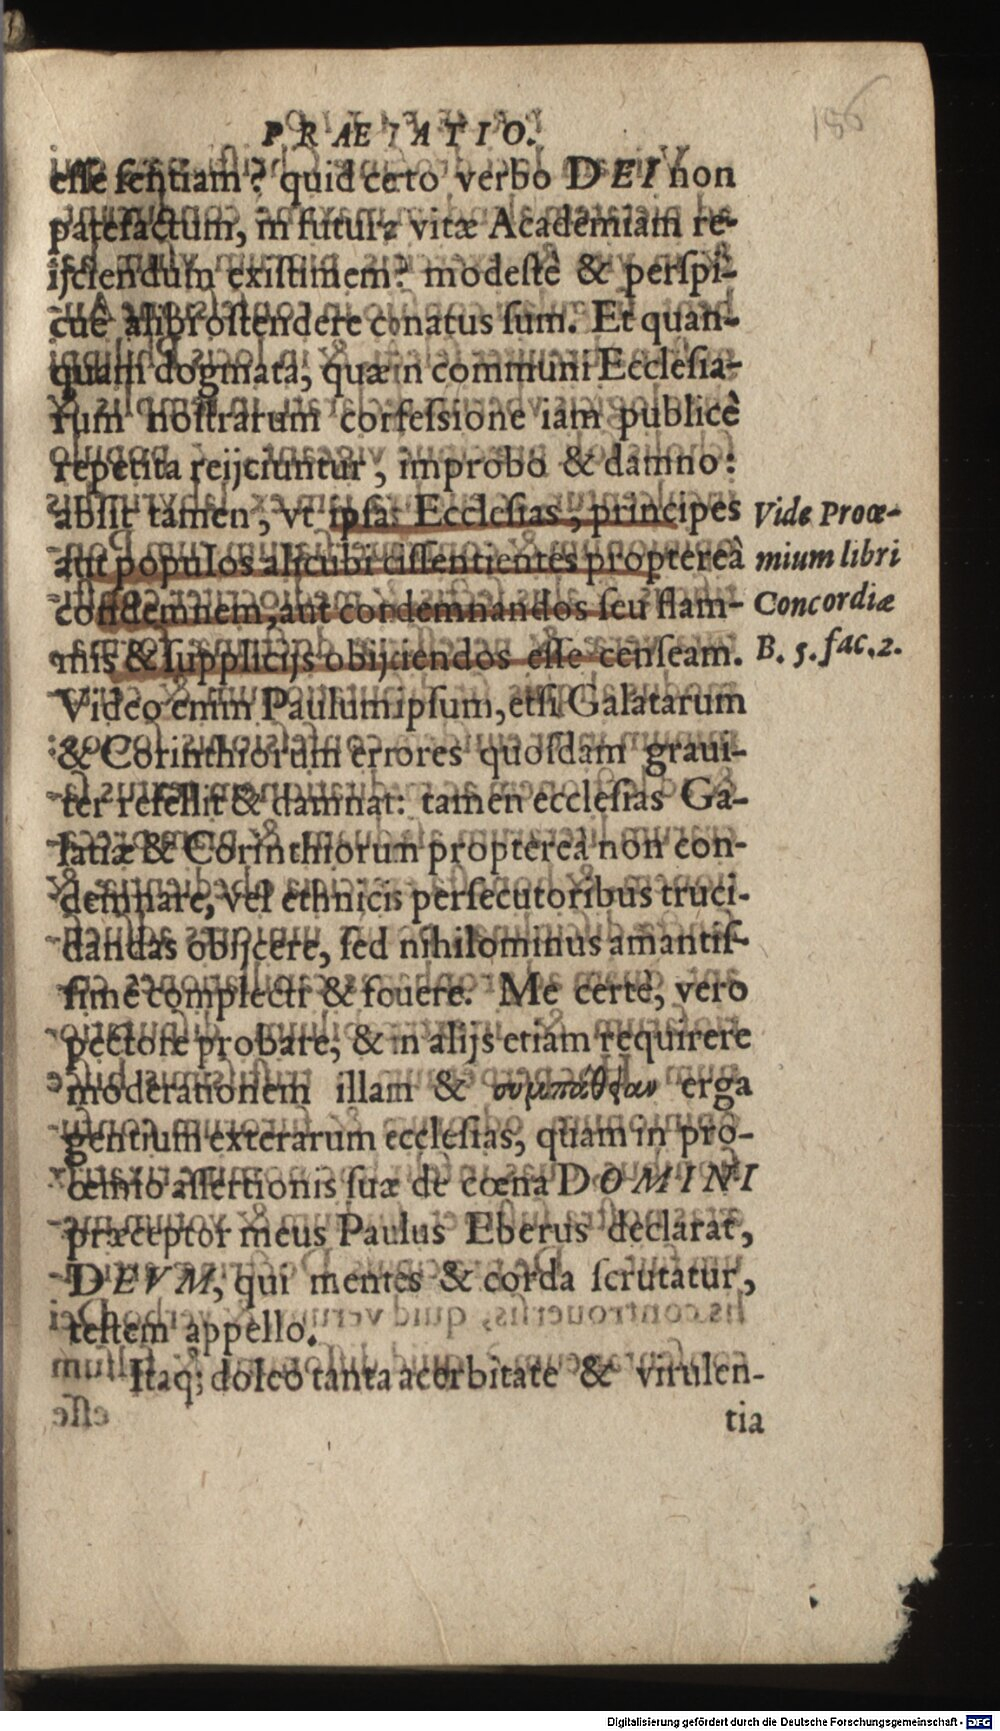 186
PRÆFATIO.
esse sentiam? quid certo verbo DEI non
patefactum, in futuræ vitæ Academiam re-
ijciendum existimem? modestè & perspi-
cuè alibi ostendere conatus sum. Et quan-
quam dogmata, quæ in communi Ecclesia-
rum nostrarum confessione iam publicè
repetita reijciuntur, improbo & damno:
absit tamen, vt ipsas Ecclesias, principes
aut populos alicubi dissentientes proptereà
condemnem, aut condemnandos seu flam-
mis & supplicijs obijciendos esse censeam.
Video enim Paulum ipsum, etsi Galatarum
& Corinthiorum errores quosdam graui-
ter refellit & damnat: tamen ecclesias Ga-
latiæ & Corinthiorum proptereà non con-
demnare, vel ethnicis persecutoribus truci-
dandas obijcere, sed nihilominus amantis-
simè complecti & fouere. Me certè, vero
pectore probare, & in alijs etiam requirere
moderationem illam & συμπάθειαν erga
gentium exterarum ecclesias, quam in pro-
œmio assertionis suæ de cœna DOMINI
præceptor meus Paulus Eberus declarat,
DEVM, qui mentes & corda scrutatur,
testem appello.
Itaq; doleo tanta acerbitate & virulen-
tia
Vide Proœ-
mium libri
Concordiæ
B. 5. fac. 2.
Digitalisierung gefördert durch die Deutsche Forschungsgemeinschaft - DFG